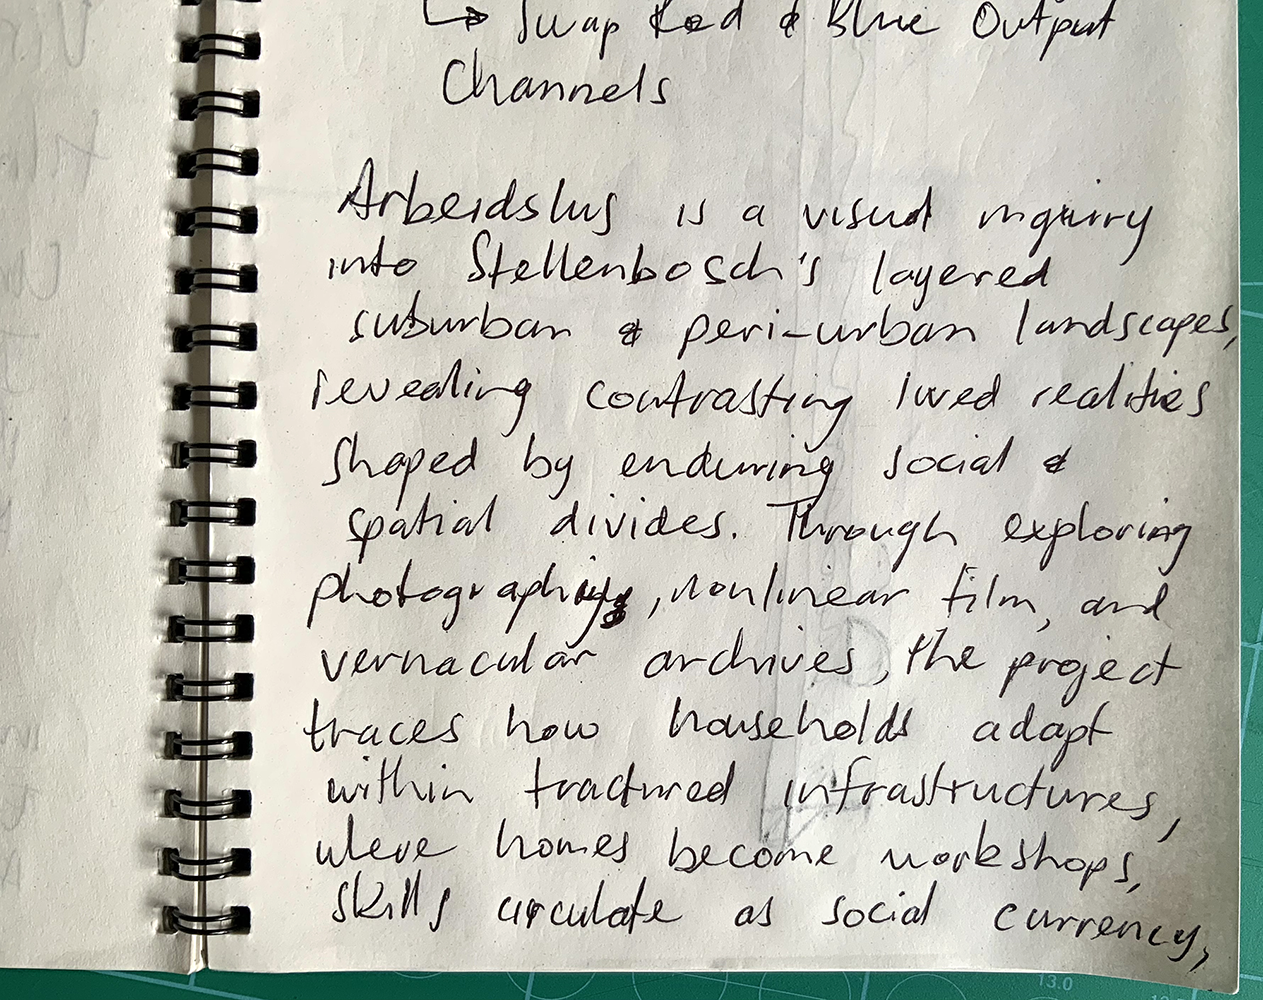 ↳ Swap Red & Blue Output
Channels
Arbeidslus is a visual inquiry
into Stellenbosch's layered
suburban & peri-urban landscapes,
revealing contrasting lived realities
shaped by enduring social &
spatial divides. Through exploring
photography, nonlinear film, and
vernacular archives, the project
traces how households adapt
within fractured infrastructures,
where homes become workshops,
skills circulate as social currency,
13.0